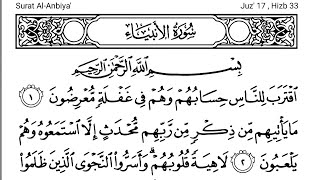 Surat Al-Anbiya' Juz' 17 , Hizb 33
سُورَةُ الأَنبِيَاء
بِسْمِ ٱللَّهِ ٱلرَّحْمَٰنِ ٱلرَّحِيمِ
ٱقْتَرَبَ لِلنَّاسِ حِسَابُهُمْ وَهُمْ فِي غَفْلَةٍ مُّعْرِضُونَ ١
مَا يَأْتِيهِم مِّن ذِكْرٍ مِّن رَّبِّهِم مُّحْدَثٍ إِلَّا ٱسْتَمَعُوهُ وَهُمْ
يَلْعَبُونَ ٢ لَاهِيَةً قُلُوبُهُمْ ۗ وَأَسَرُّوا۟ ٱلنَّجْوَى ٱلَّذِينَ ظَلَمُوا۟